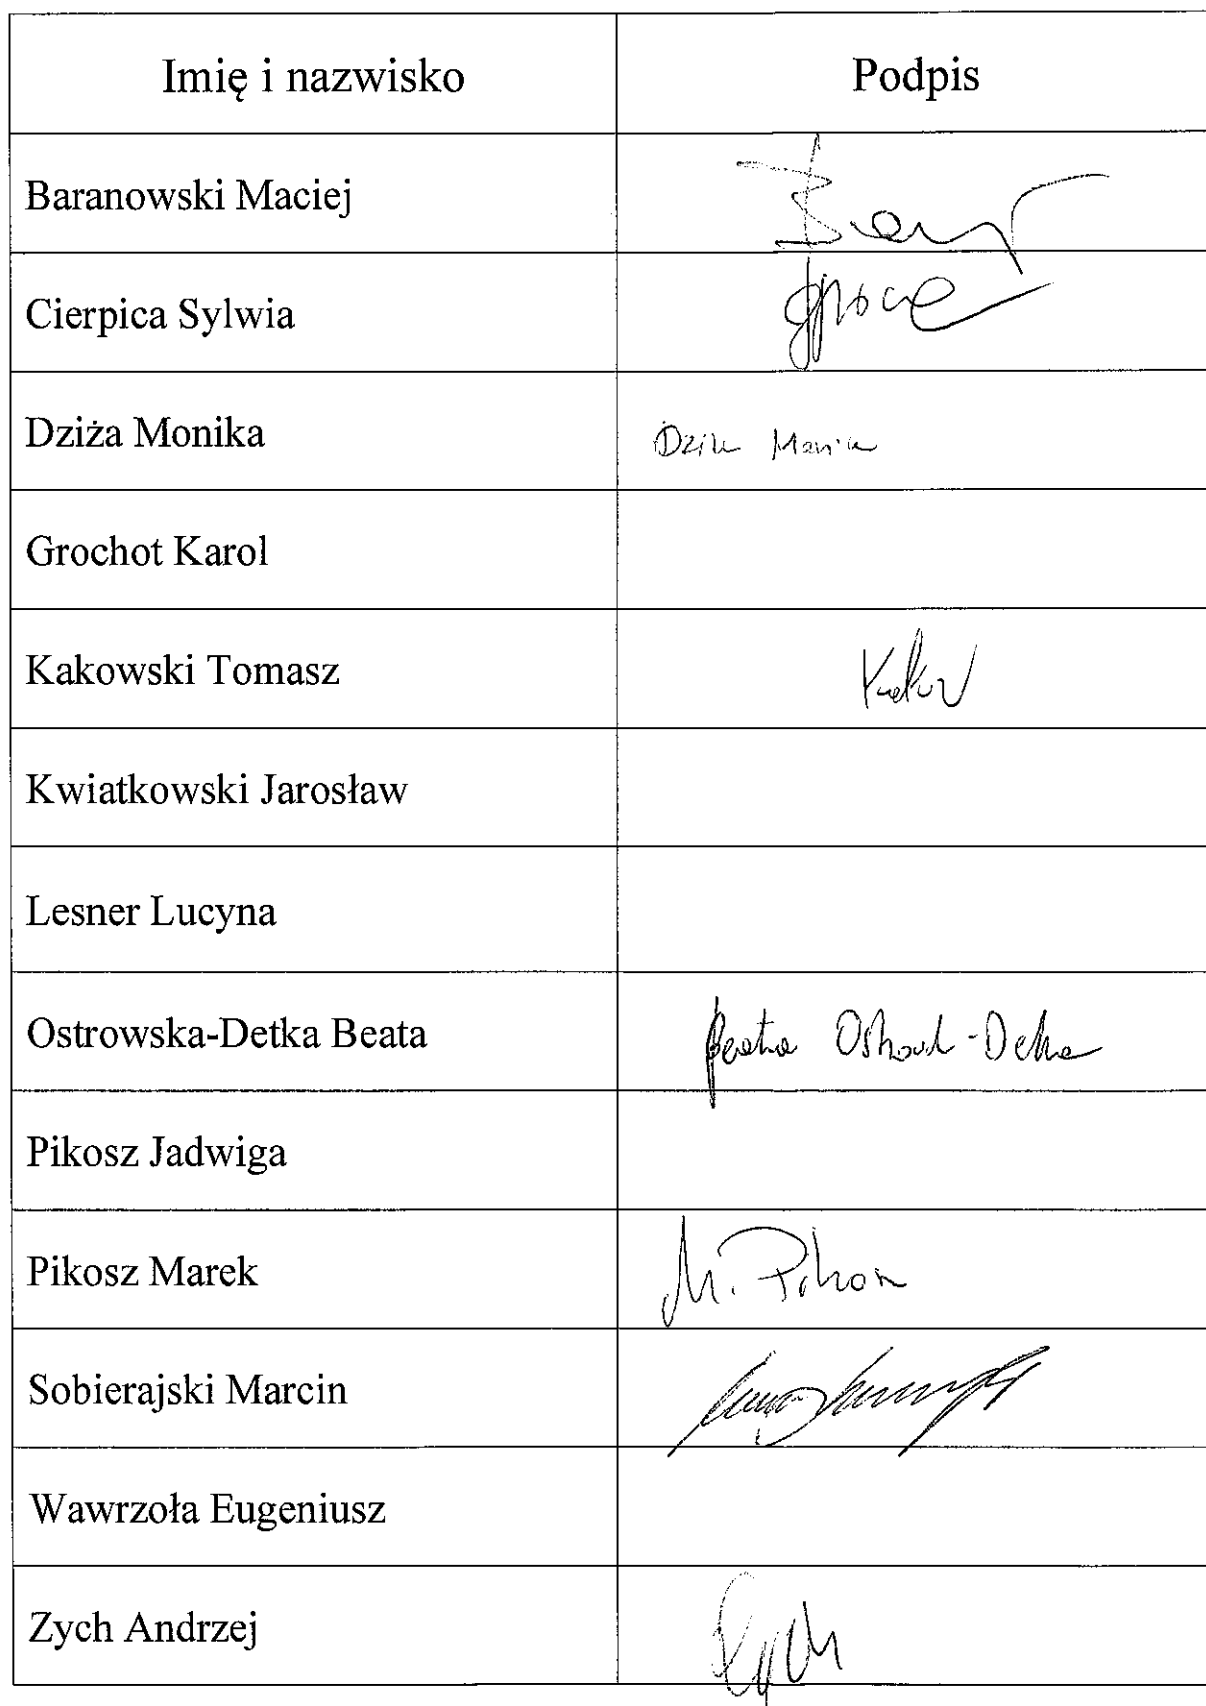 Imię i nazwisko Podpis
Baranowski Maciej
Cierpica Sylwia
Dziża Monika
Grochot Karol
Kakowski Tomasz
Kwiatkowski Jarosław
Lesner Lucyna
Ostrowska-Detka Beata Beata
Pikosz Jadwiga
Pikosz Marek M.
Sobierajski Marcin
Wawrzoła Eugeniusz
Zych Andrzej Zych